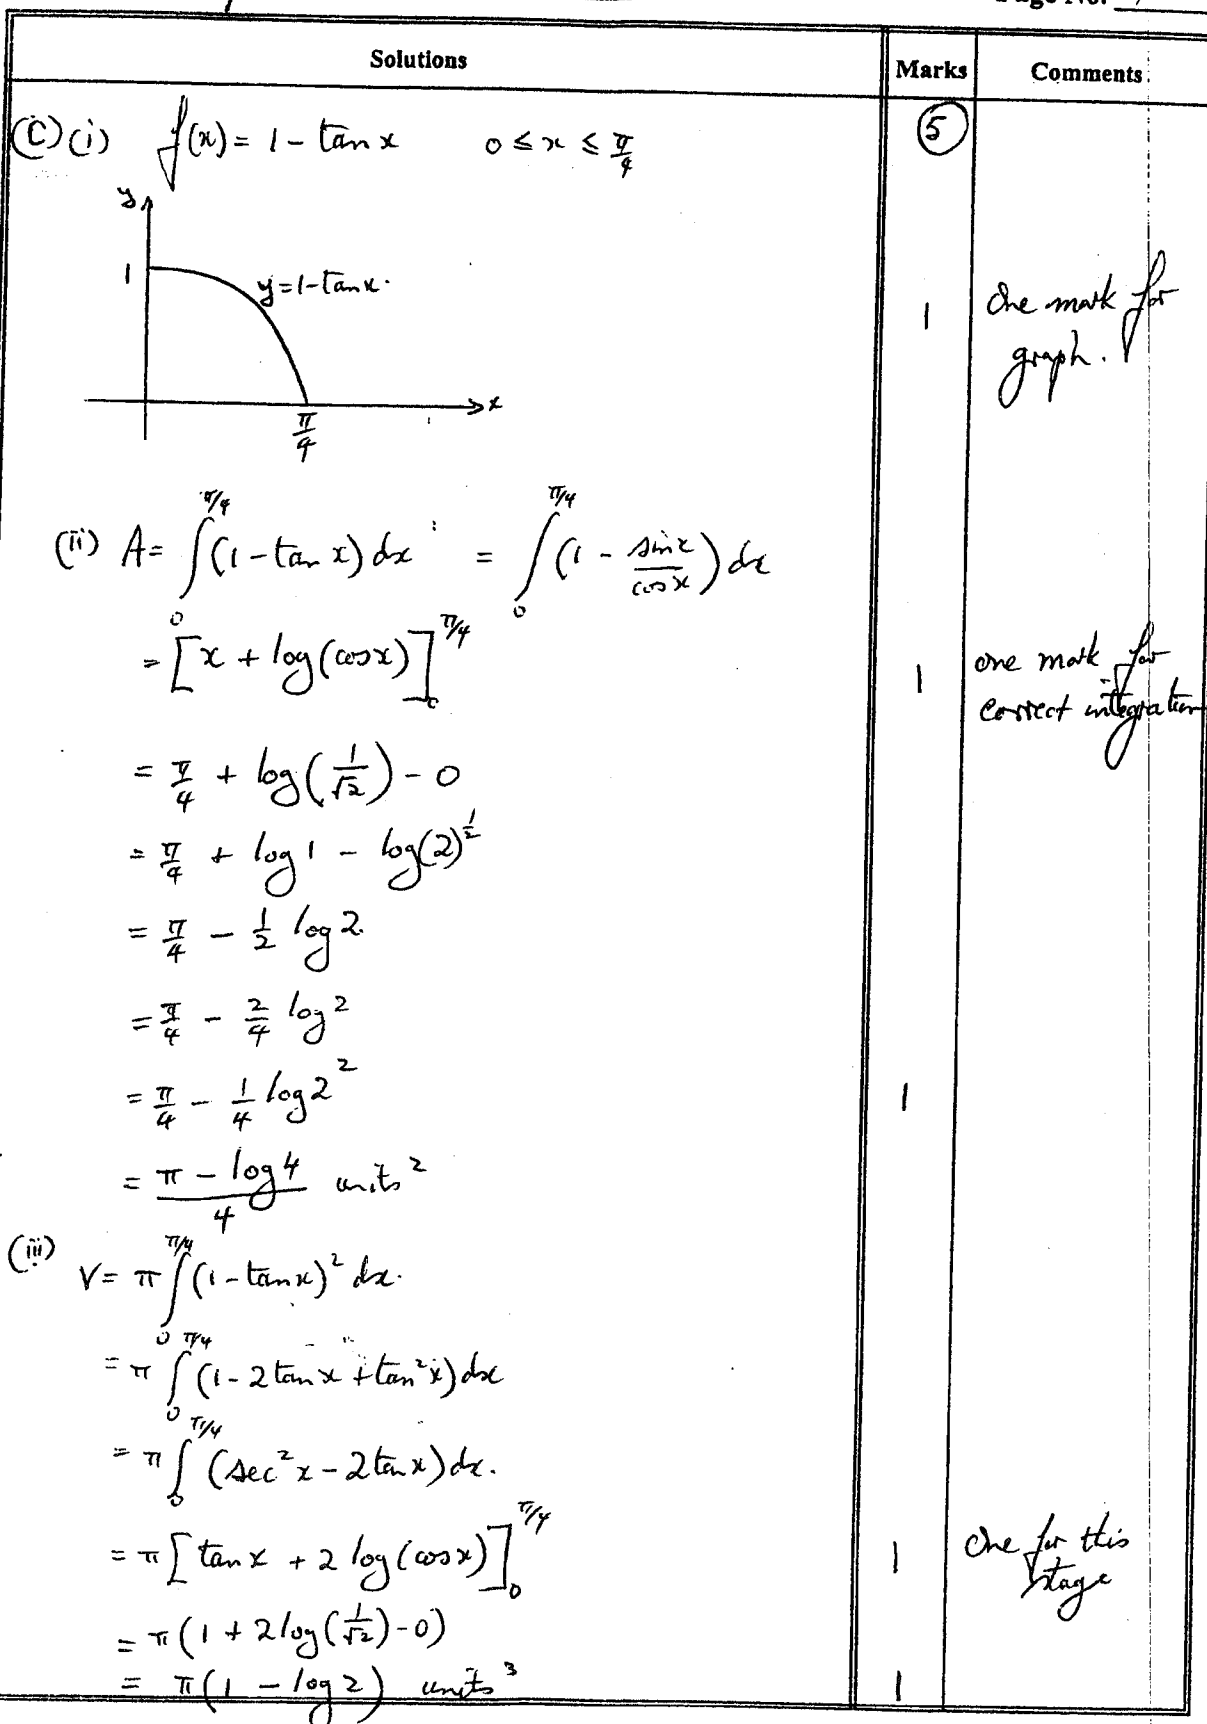 Solutions Marks Comments
(C) (i) f(x) = 1 - tan x 0 ≤ x ≤ π/4 (5)
y
1
y=1-tan x.
x
π/4
1 One mark for
graph.
(ii) A = ∫₀^{π/4} (1 - tan x) dx = ∫₀^{π/4} (1 - sin x/cos x) dx
= [x + log(cos x)]₀^{π/4} 1 one mark for
correct integration
= π/4 + log(1/√2) - 0
= π/4 + log 1 - log(2)^{1/2}
= π/4 - 1/2 log 2.
= π/4 - 2/4 log 2
= π/4 - 1/4 log 2² 1
= (π - log 4)/4 units²
(iii) V = π ∫₀^{π/4} (1 - tan x)² dx.
= π ∫₀^{π/4} (1 - 2 tan x + tan² x) dx
= π ∫₀^{π/4} (sec² x - 2 tan x) dx.
= π [tan x + 2 log(cos x)]₀^{π/4} 1 One for this
stage
= π (1 + 2 log(1/√2) - 0)
= π (1 - log 2) units³ 1